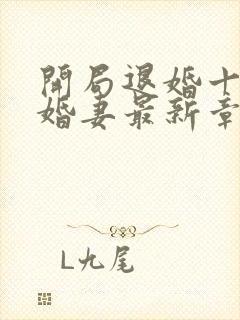 開局退婚十
婚妻最新章
L九尾